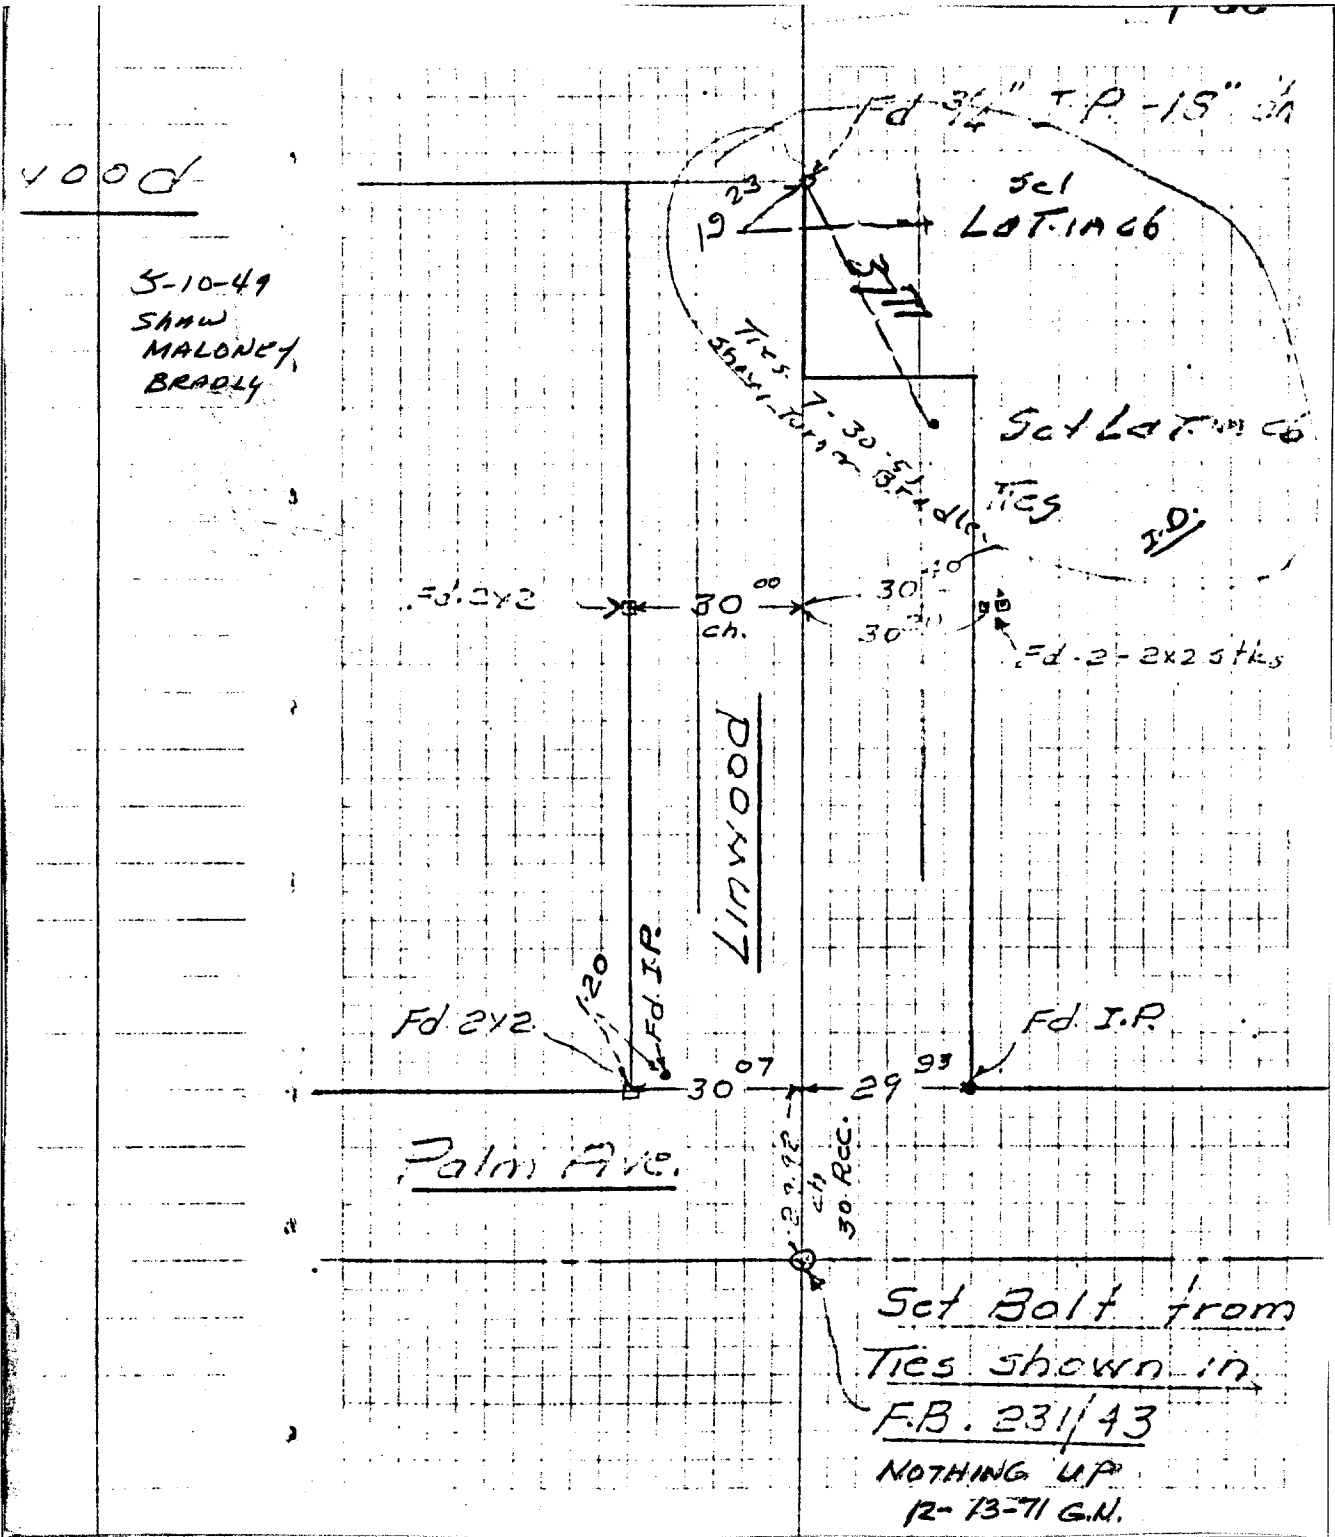 wood
5-10-49
SHAW
MALONEY
BRADLY
Fd 3/4" I.P. -18" dn
19 23
Set
L&T. in cb
Ties 7-30-51
Shaw-Turner-Bradle
Set L&T. in cb
Ties
I.D.
Fd. 2x2
30 00
ch.
30 40
30 70
Fd. 2 - 2x2 stks
Linwood
Fd 2x2
1.20
Fd. I.P.
Fd. I.P.
30 07
29 93
Palm Ave.
29.92
ch
30 Rec.
Set Bolt from
Ties shown in
F.B. 231/43
NOTHING UP
12-13-71 G.N.